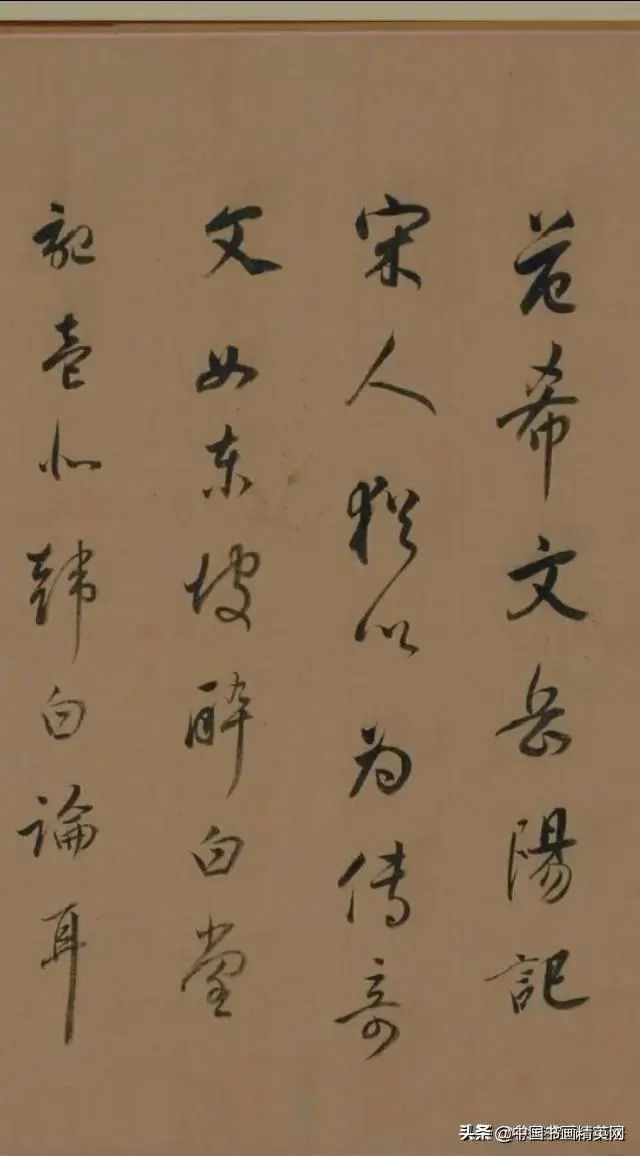 范希文岳陽記
宋人猶以为傳奇
文如東坡醉白堂
記壹似韓白論耳
头条 @中国书画精英网